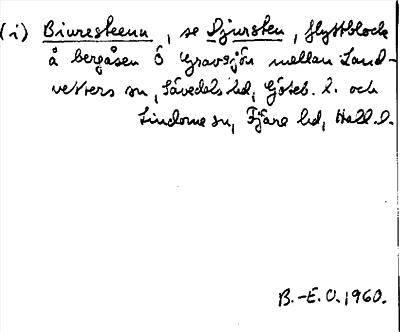 (i) Biuresteenn, se Djursten, flyttblock
å bergåsen Ö Gravsjön mellan Land-
vetters sn, Sävedals hd, Göteb. l. och
Lindome sn, Fjäre hd, Hall. l.
B.-E.O. 1960.